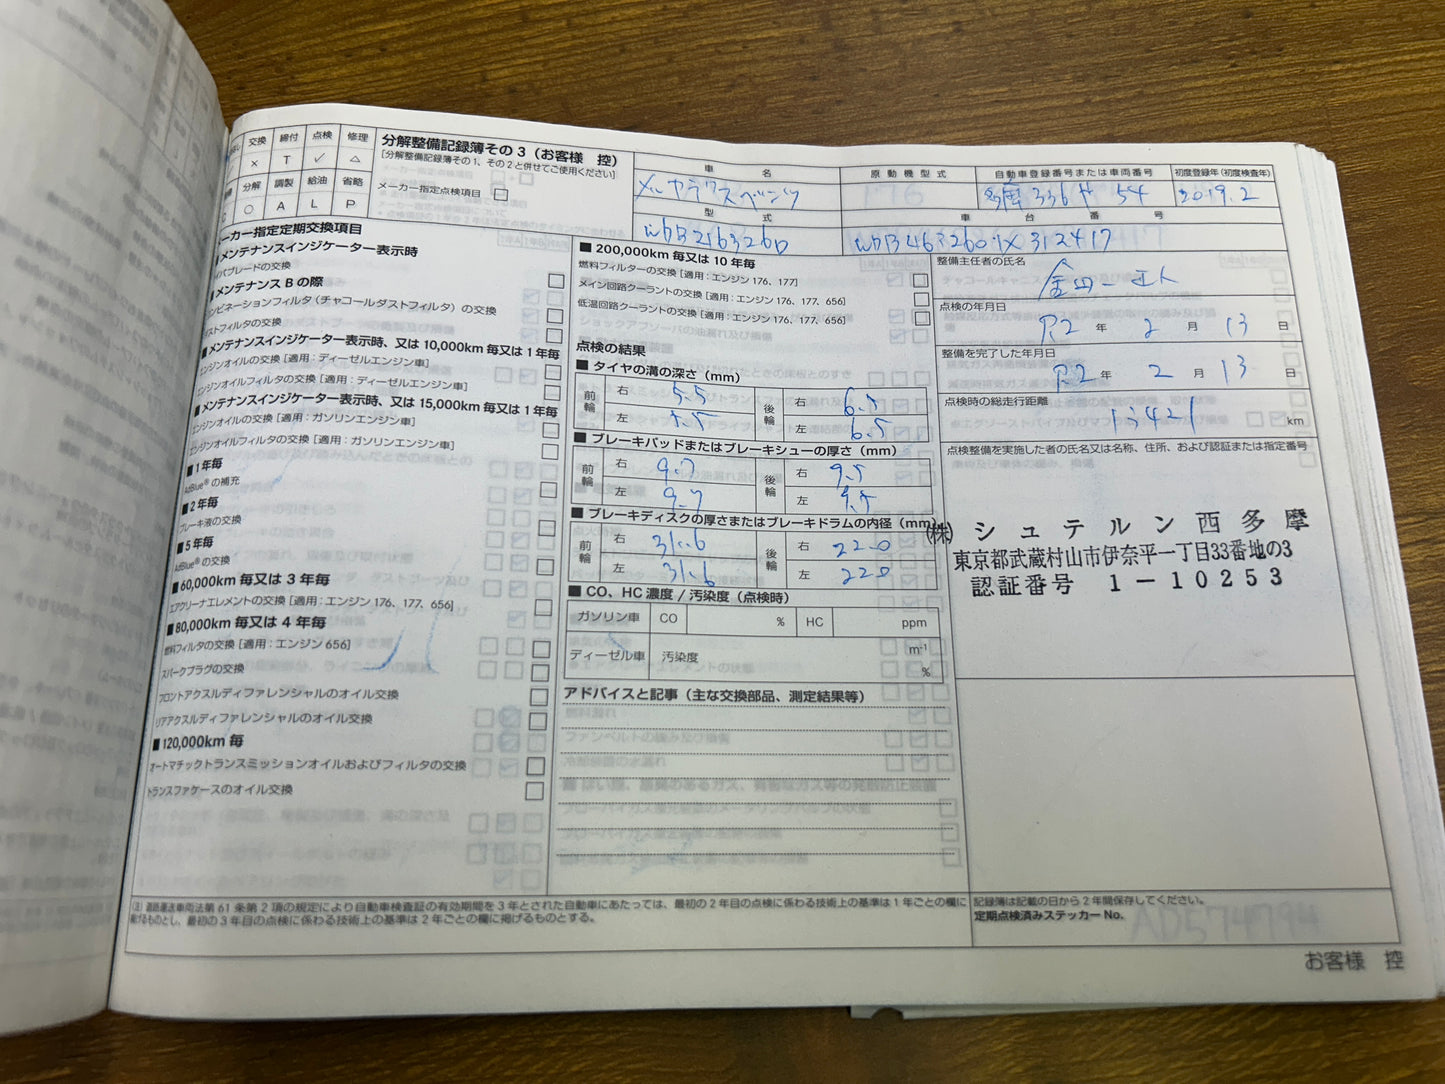 交換 締付 点検 修理
× T ✓ △
分解 調製 給油 省略
○ A L P
分解整備記録簿その3（お客様 控）
［分解整備記録簿その1、その2と併せてご使用ください］
メーカー指定点検項目 □
車 名
メルセデスベンツ
原 動 機 型 式
自動車登録番号または車両番号
多摩 336 サ 54
初度登録年（初度検査年）
2019.2
型 式
車 台 番 号
メーカー指定定期交換項目
■メンテナンスインジケーター表示時
イパブレードの交換
■メンテナンス B の際
ンビネーションフィルタ（チャコールダストフィルタ）の交換
ストフィルタの交換
■メンテナンスインジケーター表示時、又は 10,000km 毎又は 1 年毎
エンジンオイルの交換［適用：ディーゼルエンジン車］
エンジンオイルフィルタの交換［適用：ディーゼルエンジン車］
■メンテナンスインジケーター表示時、又は 15,000km 毎又は 1 年毎
エンジンオイルの交換［適用：ガソリンエンジン車］
エンジンオイルフィルタの交換［適用：ガソリンエンジン車］
■1 年毎
AdBlue® の補充
■2 年毎
ブレーキ液の交換
■5 年毎
AdBlue® の交換
■60,000km 毎又は 3 年毎
エアクリーナエレメントの交換［適用：エンジン 176、177、656］
■80,000km 毎又は 4 年毎
燃料フィルタの交換［適用：エンジン 656］
スパークプラグの交換
フロントアクスルディファレンシャルのオイル交換
リアアクスルディファレンシャルのオイル交換
■120,000km 毎
オートマチックトランスミッションオイルおよびフィルタの交換
トランスファケースのオイル交換
■ 200,000km 毎又は 10 年毎
燃料フィルターの交換［適用：エンジン 176、177］
メイン回路クーラントの交換［適用：エンジン 176、177、656］
低温回路クーラントの交換［適用：エンジン 176、177、656］
点検の結果
■ タイヤの溝の深さ（mm）
前輪 右 5.5 後輪 右 6.5
左 5.5 左 6.5
■ ブレーキパッドまたはブレーキシューの厚さ（mm）
前輪 右 9.7 後輪 右 9.5
左 9.7 左 9.5
■ ブレーキディスクの厚さまたはブレーキドラムの内径（mm）
前輪 右 31.6 後輪 右 22.0
左 31.6 左 22.0
■ CO、HC 濃度 / 汚染度（点検時）
ガソリン車 CO % HC ppm
ディーゼル車 汚染度 m⁻¹
%
アドバイスと記事（主な交換部品、測定結果等）
整備主任者の氏名
点検の年月日
R2 年 2 月 13 日
整備を完了した年月日
R2 年 2 月 13 日
点検時の総走行距離
13421 km
点検整備を実施した者の氏名又は名称、住所、および認証または指定番号
㈱ シュテルン西多摩
東京都武蔵村山市伊奈平一丁目33番地の3
認証番号 1－10253
（注）道路運送車両法第 61 条第 2 項の規定により自動車検査証の有効期間を 3 年とされた自動車にあたっては、最初の 2 年目の点検に係わる技術上の基準は 1 年ごとの欄に
掲げるものとし、最初の 3 年目の点検に係わる技術上の基準は 2 年ごとの欄に掲げるものとする。
記録簿は記載の日から 2 年間保存してください。
定期点検済みステッカー No.
AD574794
お客様 控